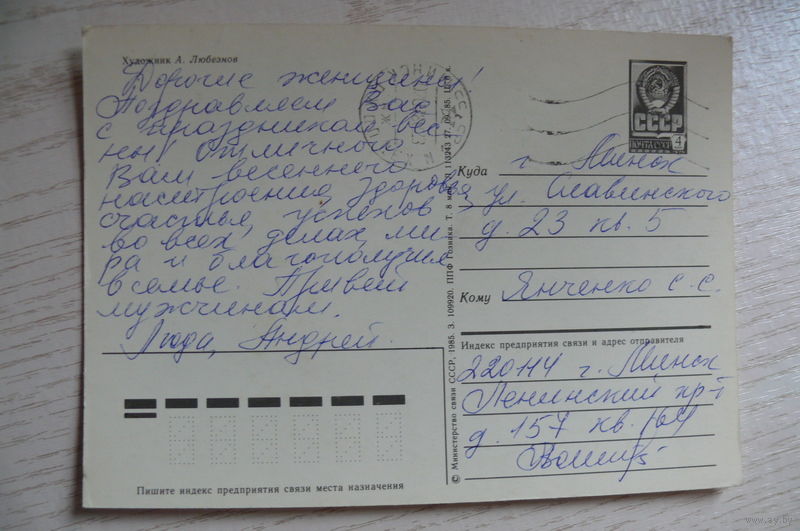 Художник А. Любезнов
Дорогие женщины!
Поздравляем Вас
с праздником вес-
ны! Отличного
Вам весеннего
настроения, здоровья
счастья, успехов
во всех делах, ми-
ра и благополучия
в семье. Привет
мужчинам.
Люда, Андрей.
СССР
ПОЧТА СССР 4
Куда г. Минск
ул. Славинского
д. 23 кв. 5
Кому Янченко С. С.
Индекс предприятия связи и адрес отправителя
220114 г. Минск
Ленинский пр-т
д. 157 кв.
Пишите индекс предприятия связи места назначения
© Министерство связи СССР, 1985. З. 109920. ППФ Гознака. Т. 8
www.ay.by